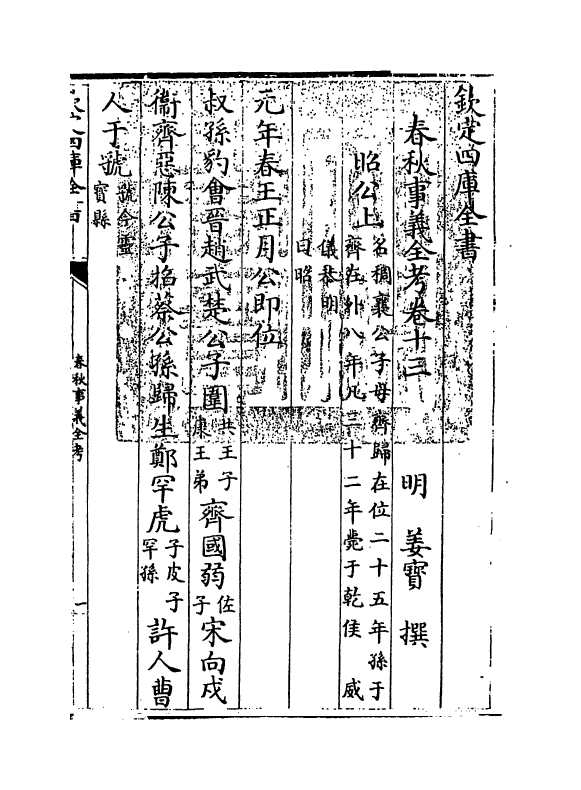 欽定四庫全書
春秋事義全考卷十三
明 姜寶 撰
昭公上
名稠襄公子母齊歸在位二十五年孫于
齊在外八年凡三十二年薨于乾侯 威
儀恭明
曰昭
元年春王正月公即位
叔孫豹會晉趙武楚公子圍
共王子
康王弟
齊國弱
佐
子
宋向戌
衞齊惡陳公子招蔡公孫歸生鄭罕虎
子皮子
罕孫
許人曹
人于虢
虢今靈
寳縣
春秋事義全考
一